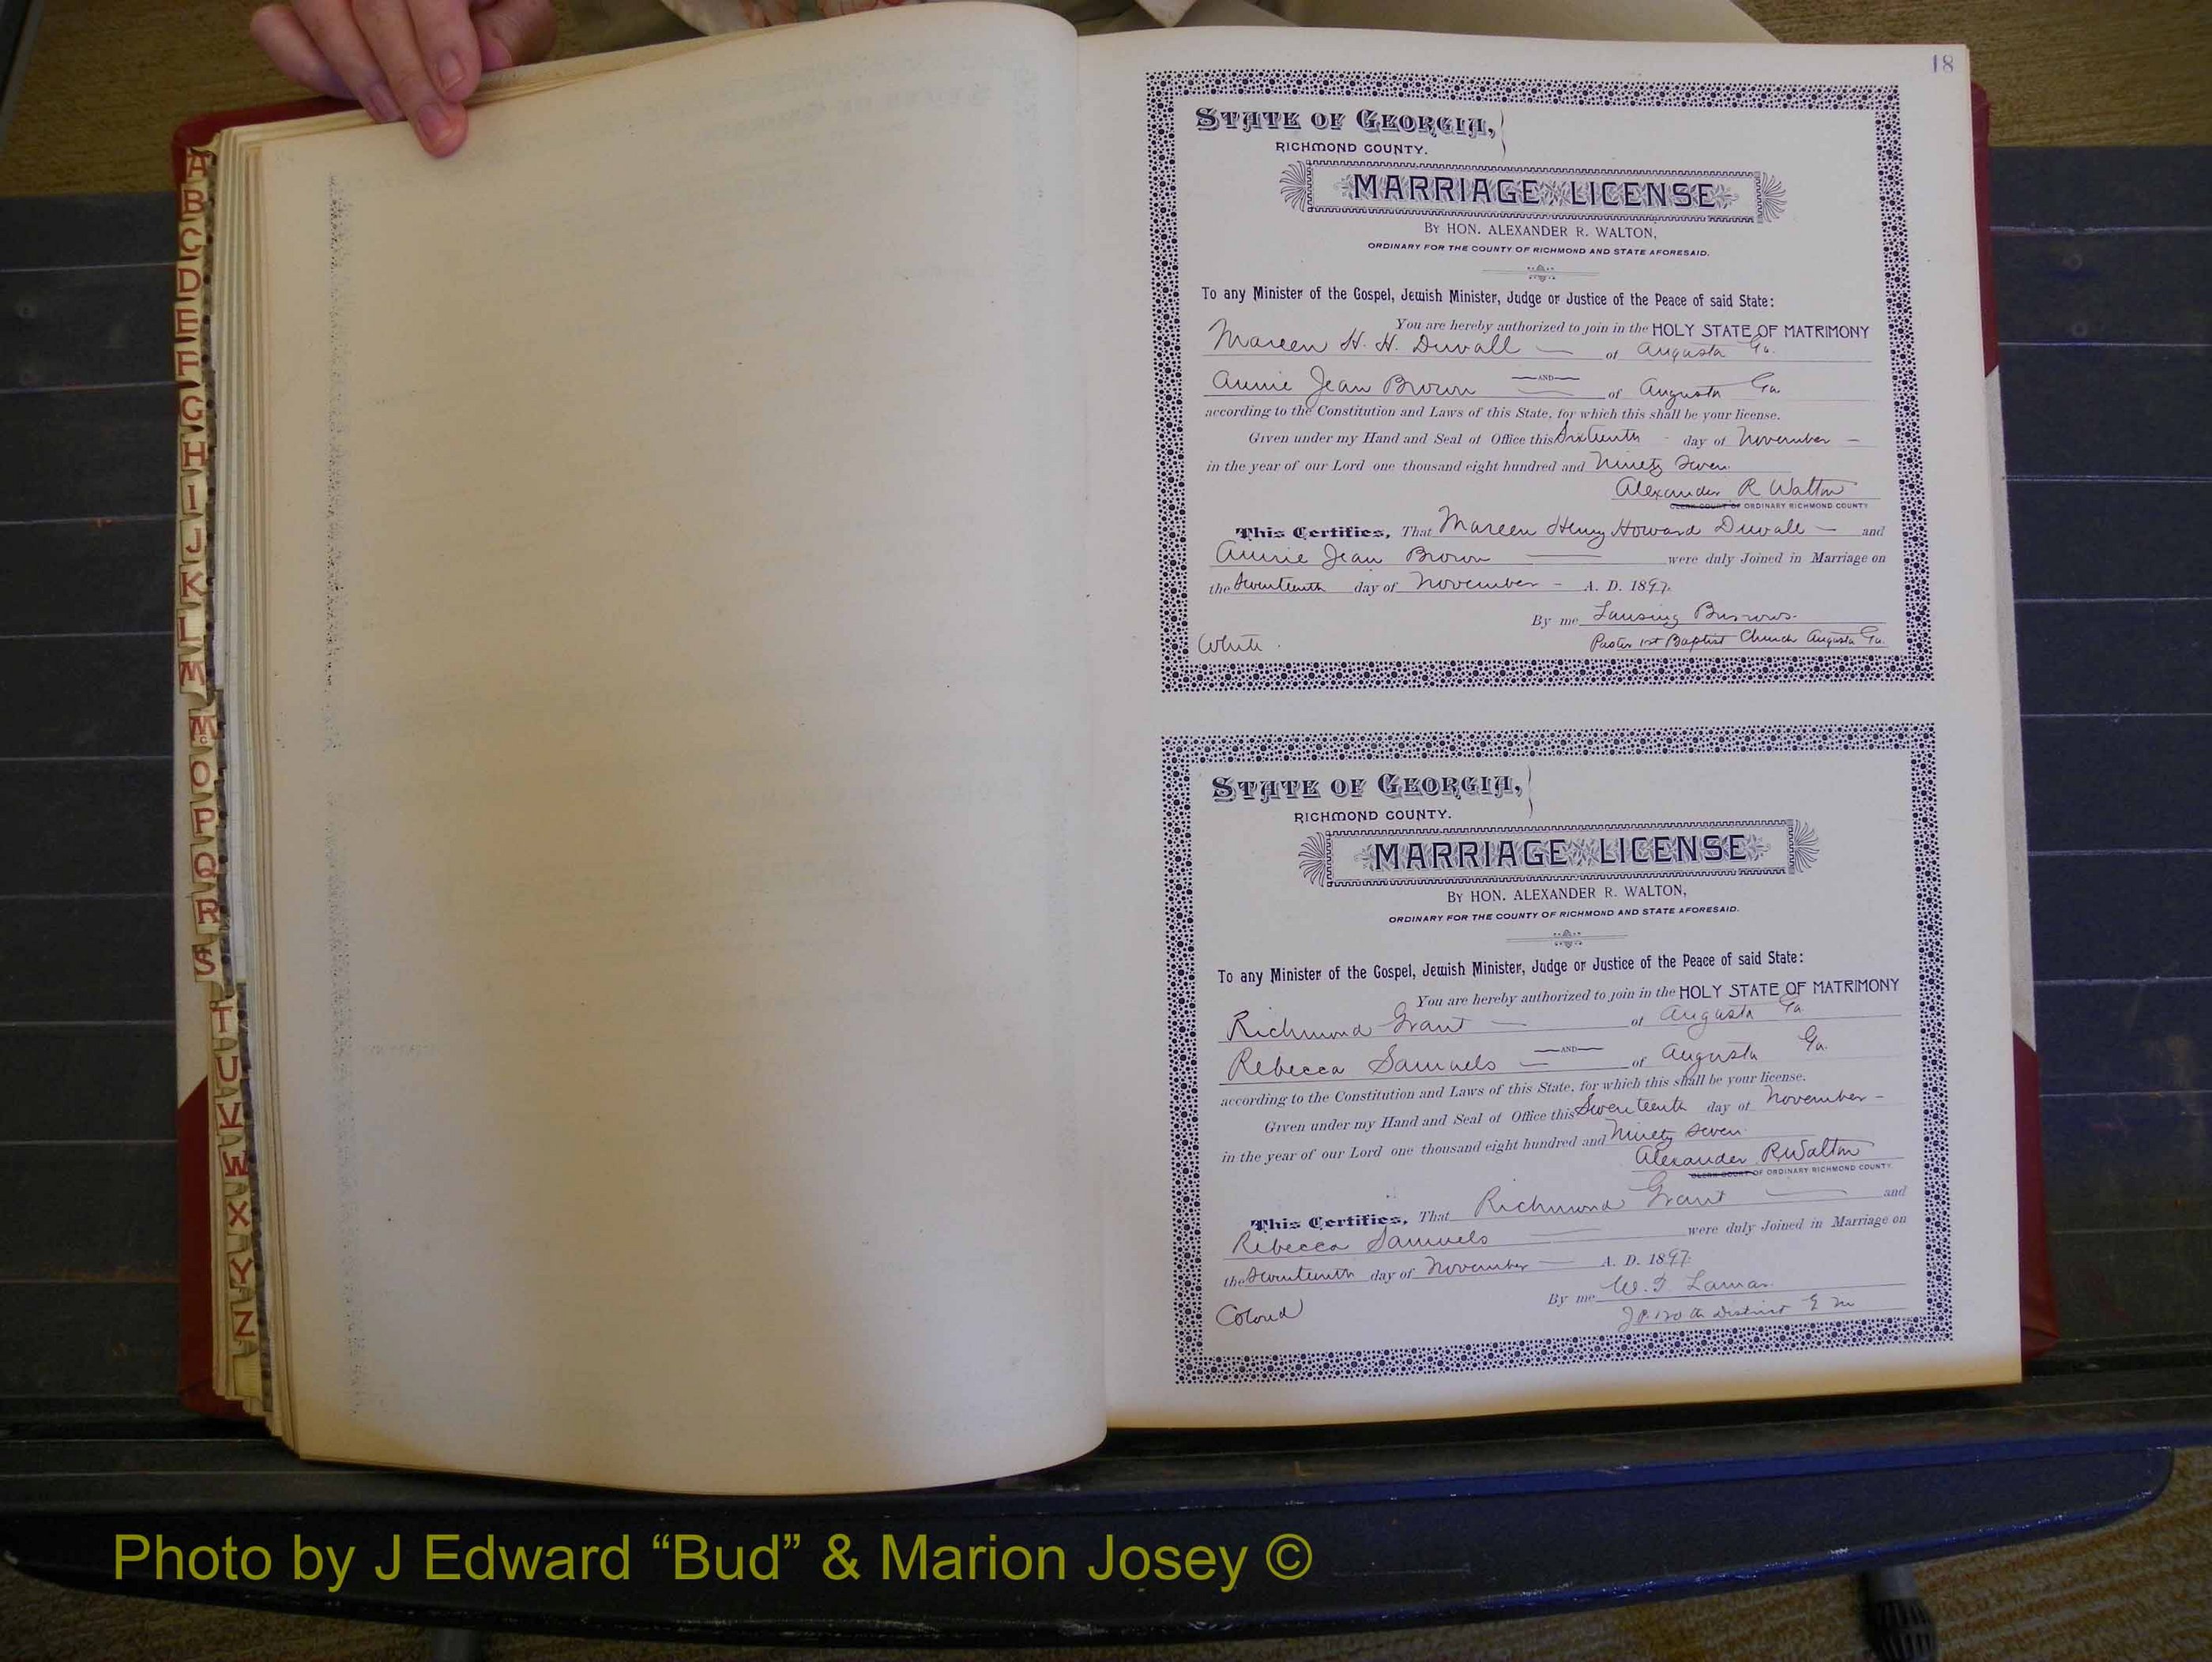 18
A
B
C
D
E
F
G
H
I
J
K
L
M
Mc
O
P
Q
R
S
T
U
V
W
X
Y
Z
STATE OF GEORGIA,
RICHMOND COUNTY.
MARRIAGE LICENSE
BY HON. ALEXANDER R. WALTON,
ORDINARY FOR THE COUNTY OF RICHMOND AND STATE AFORESAID.
To any Minister of the Gospel, Jewish Minister, Judge or Justice of the Peace of said State:
You are hereby authorized to join in the HOLY STATE OF MATRIMONY
Mareen H. H. Duvall — of Augusta Ga.
—AND—
Annie Jean Brown — of Augusta Ga
according to the Constitution and Laws of this State, for which this shall be your license.
Given under my Hand and Seal of Office this Sixteenth - day of November -
in the year of our Lord one thousand eight hundred and Ninety Seven.
Alexander R Walton
CLERK COURT OF ORDINARY RICHMOND COUNTY
This Certifies, That Mareen Henry Howard Duvall — and
Annie Jean Brown — were duly Joined in Marriage on
the Seventeenth day of November - A. D. 1897.
By me Lansing Burrows.
White. Pastor 1st Baptist Church Augusta Ga.
STATE OF GEORGIA,
RICHMOND COUNTY.
MARRIAGE LICENSE
BY HON. ALEXANDER R. WALTON,
ORDINARY FOR THE COUNTY OF RICHMOND AND STATE AFORESAID.
To any Minister of the Gospel, Jewish Minister, Judge or Justice of the Peace of said State:
You are hereby authorized to join in the HOLY STATE OF MATRIMONY
Richmond Grant — of Augusta Ga.
—AND—
Rebecca Samuels — of Augusta Ga.
according to the Constitution and Laws of this State, for which this shall be your license.
Given under my Hand and Seal of Office this Seventeenth day of November -
in the year of our Lord one thousand eight hundred and Ninety Seven.
Alexander R Walton
CLERK COURT OF ORDINARY RICHMOND COUNTY
This Certifies, That Richmond Grant — and
Rebecca Samuels — were duly Joined in Marriage on
the Seventeenth day of November — A. D. 1897.
By me W. F. Lamar.
Colored J P. 120th District G M
Photo by J Edward “Bud” & Marion Josey ©